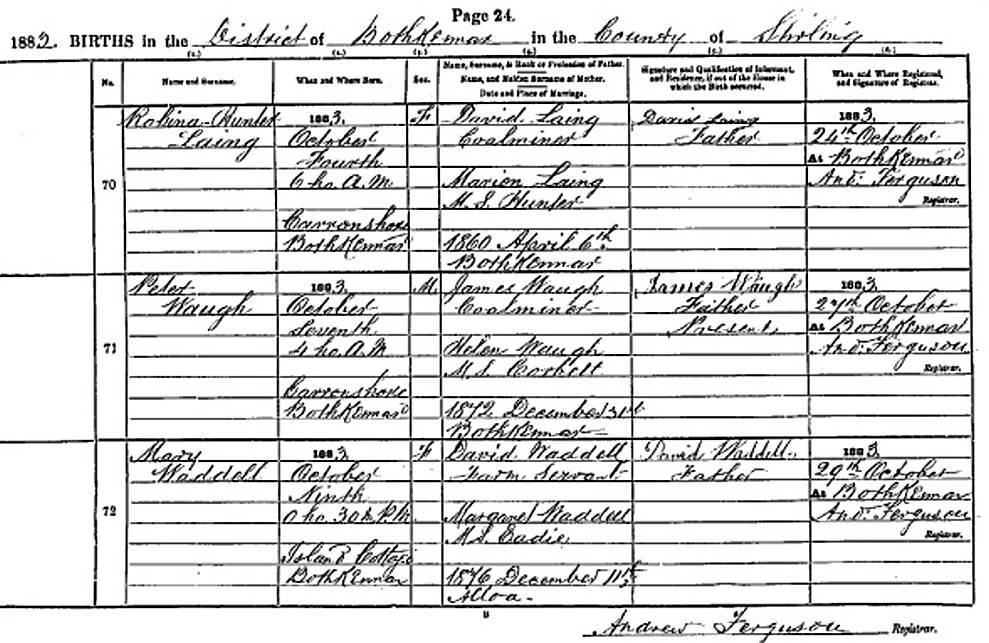 Page 24.
1883. BIRTHS in the District of Bothkennar in the County of Stirling
(1.) (2.) (3.) (4.) (5.) (6.)
No. Name and Surname. When and Where Born. Sex. Name, Surname, & Rank or Profession of Father. Name, and Maiden Surname of Mother. Date and Place of Marriage. Signature and Qualification of Informant, and Residence, if out of the House in which the Birth occurred. When and Where Registered, and Signature of Registrar.
70
Robina Hunter
Laing
1883.
October
Fourth
6 ho. A.M
Carronshore
Bothkennar
F
David Laing
Coalminer
Marion Laing
M.S. Hunter
1860 April 6th
Bothkennar
David Laing
Father
1883
24th October
At Bothkennar
And. Ferguson
Registrar.
71
Peter
Waugh
1883.
October
Seventh
4 ho. A.M
Carronshore
Bothkennar
M.
James Waugh
Coalminer
Helen Waugh
M.S. Corbett
1872 December 31st
Bothkennar
James Waugh
Father
Present
1883.
27th October
At Bothkennar
And. Ferguson
Registrar.
72
Mary
Waddell
1883.
October
Ninth
0 ho. 30 m. P.M.
Island Cottage
Bothkennar
F
David Waddell
Farm Servant
Margaret Waddell
M.S. Eadie
1876 December 11th
Alloa.
David Waddell.
Father
1883.
29th October
At Bothkennar
And. Ferguson
Registrar.
B
Andrew Ferguson Registrar.